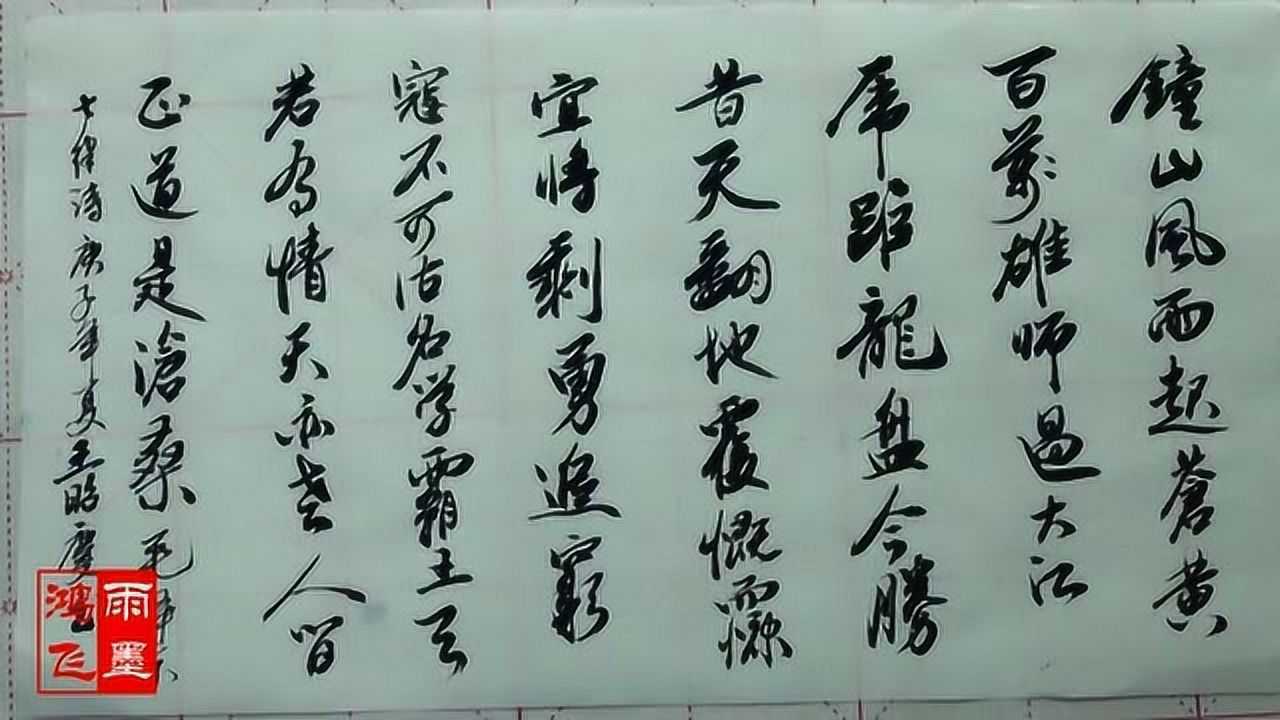 鐘山風雨起蒼黃
百萬雄師過大江
虎踞龍盤今勝
昔天翻地覆慨而慷
宜將剩勇追窮
寇不可沽名学霸王天
若有情天亦老人間
正道是滄桑毛
七律詩庚子年夏王昭慶
雨墨
鸿飞